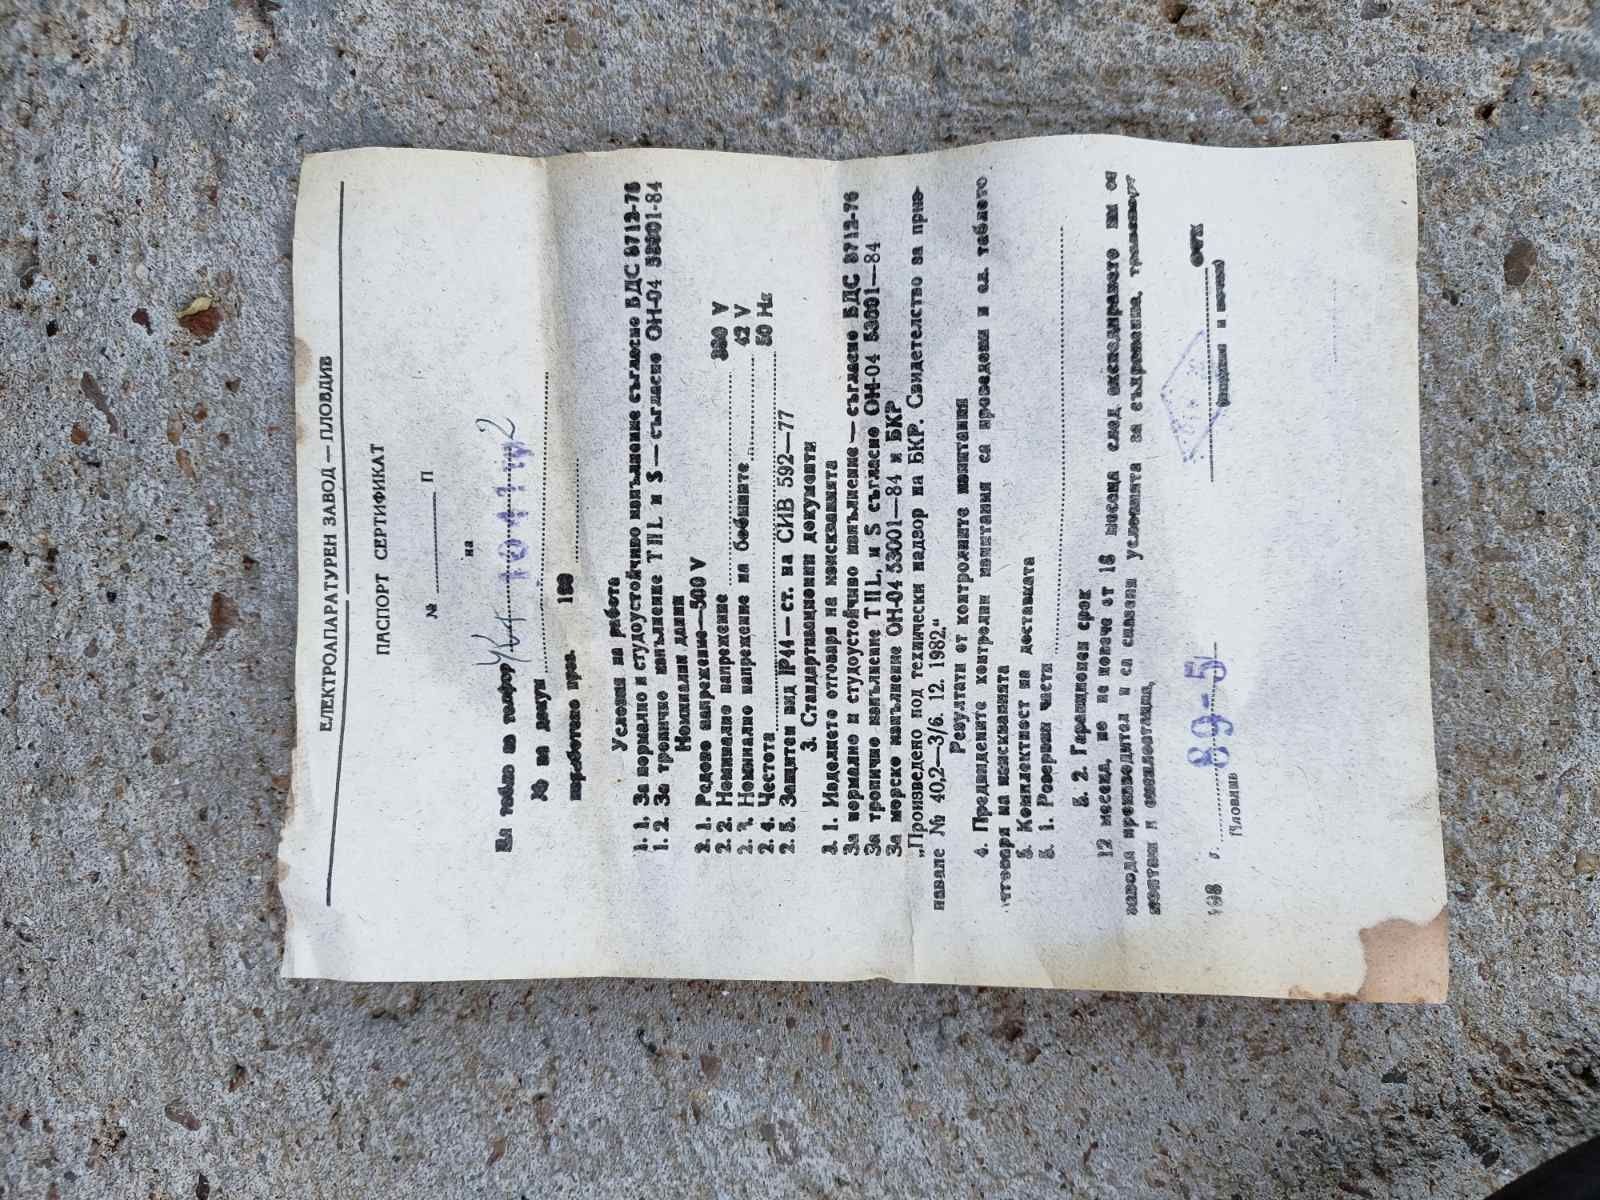 ЕЛЕКТРОАПАРАТУРЕН ЗАВОД — ПЛОВДИВ
ПАСПОРТ СЕРТИФИКАТ
№ П
на
Ел табло за телфер
№ на докум
изработено през. 198
Условия на работа
1. 1. За нормално и студоустойчиво изпълнение съгласно БДС 8712-76
1. 2. За тропично изпълнение ТIIL и S — съгласно ОН-04 53001-84
Номинални данни
2. 1. Радово напрежение—500 V
2. 2. Номинално напрежение 380 V
2. 3. Номинално напрежение на бобините 42 V
2. 4. Честота 50 Hz
2. 5. Защитен вид IP44 — ст. на СИВ 592—77
3. Стандартизационни документи
3. 1. Изделието отговаря на изискванията
За нормално и студоустойчиво изпълнение — съгласно БДС 8712-76
За тропично изпълнение ТIIL, и S съгласно ОН-04 53001—84
За морско изпълнение ОН-04 53001—84 и БКР
„Произведено под технически надзор на БКР. Свидетелство за приз-
наване № 40,2—3/6. 12. 1982.“
Резултати от контролните изпитания
4. Предвидените контролни изпитания са проведени и ел. таблото
отговаря на изискванията
5. Комплектност на доставката
5. 1. Резервни части
5. 2. Гаранционен срок
12 месеца, но не повече от 18 месеца след експедирането им от
завода производител и са спазени условията за съхранение, транспорт
монтаж и експлоатация,
198 г. 89-5 ОТК
Пловдив (подпис и печат)